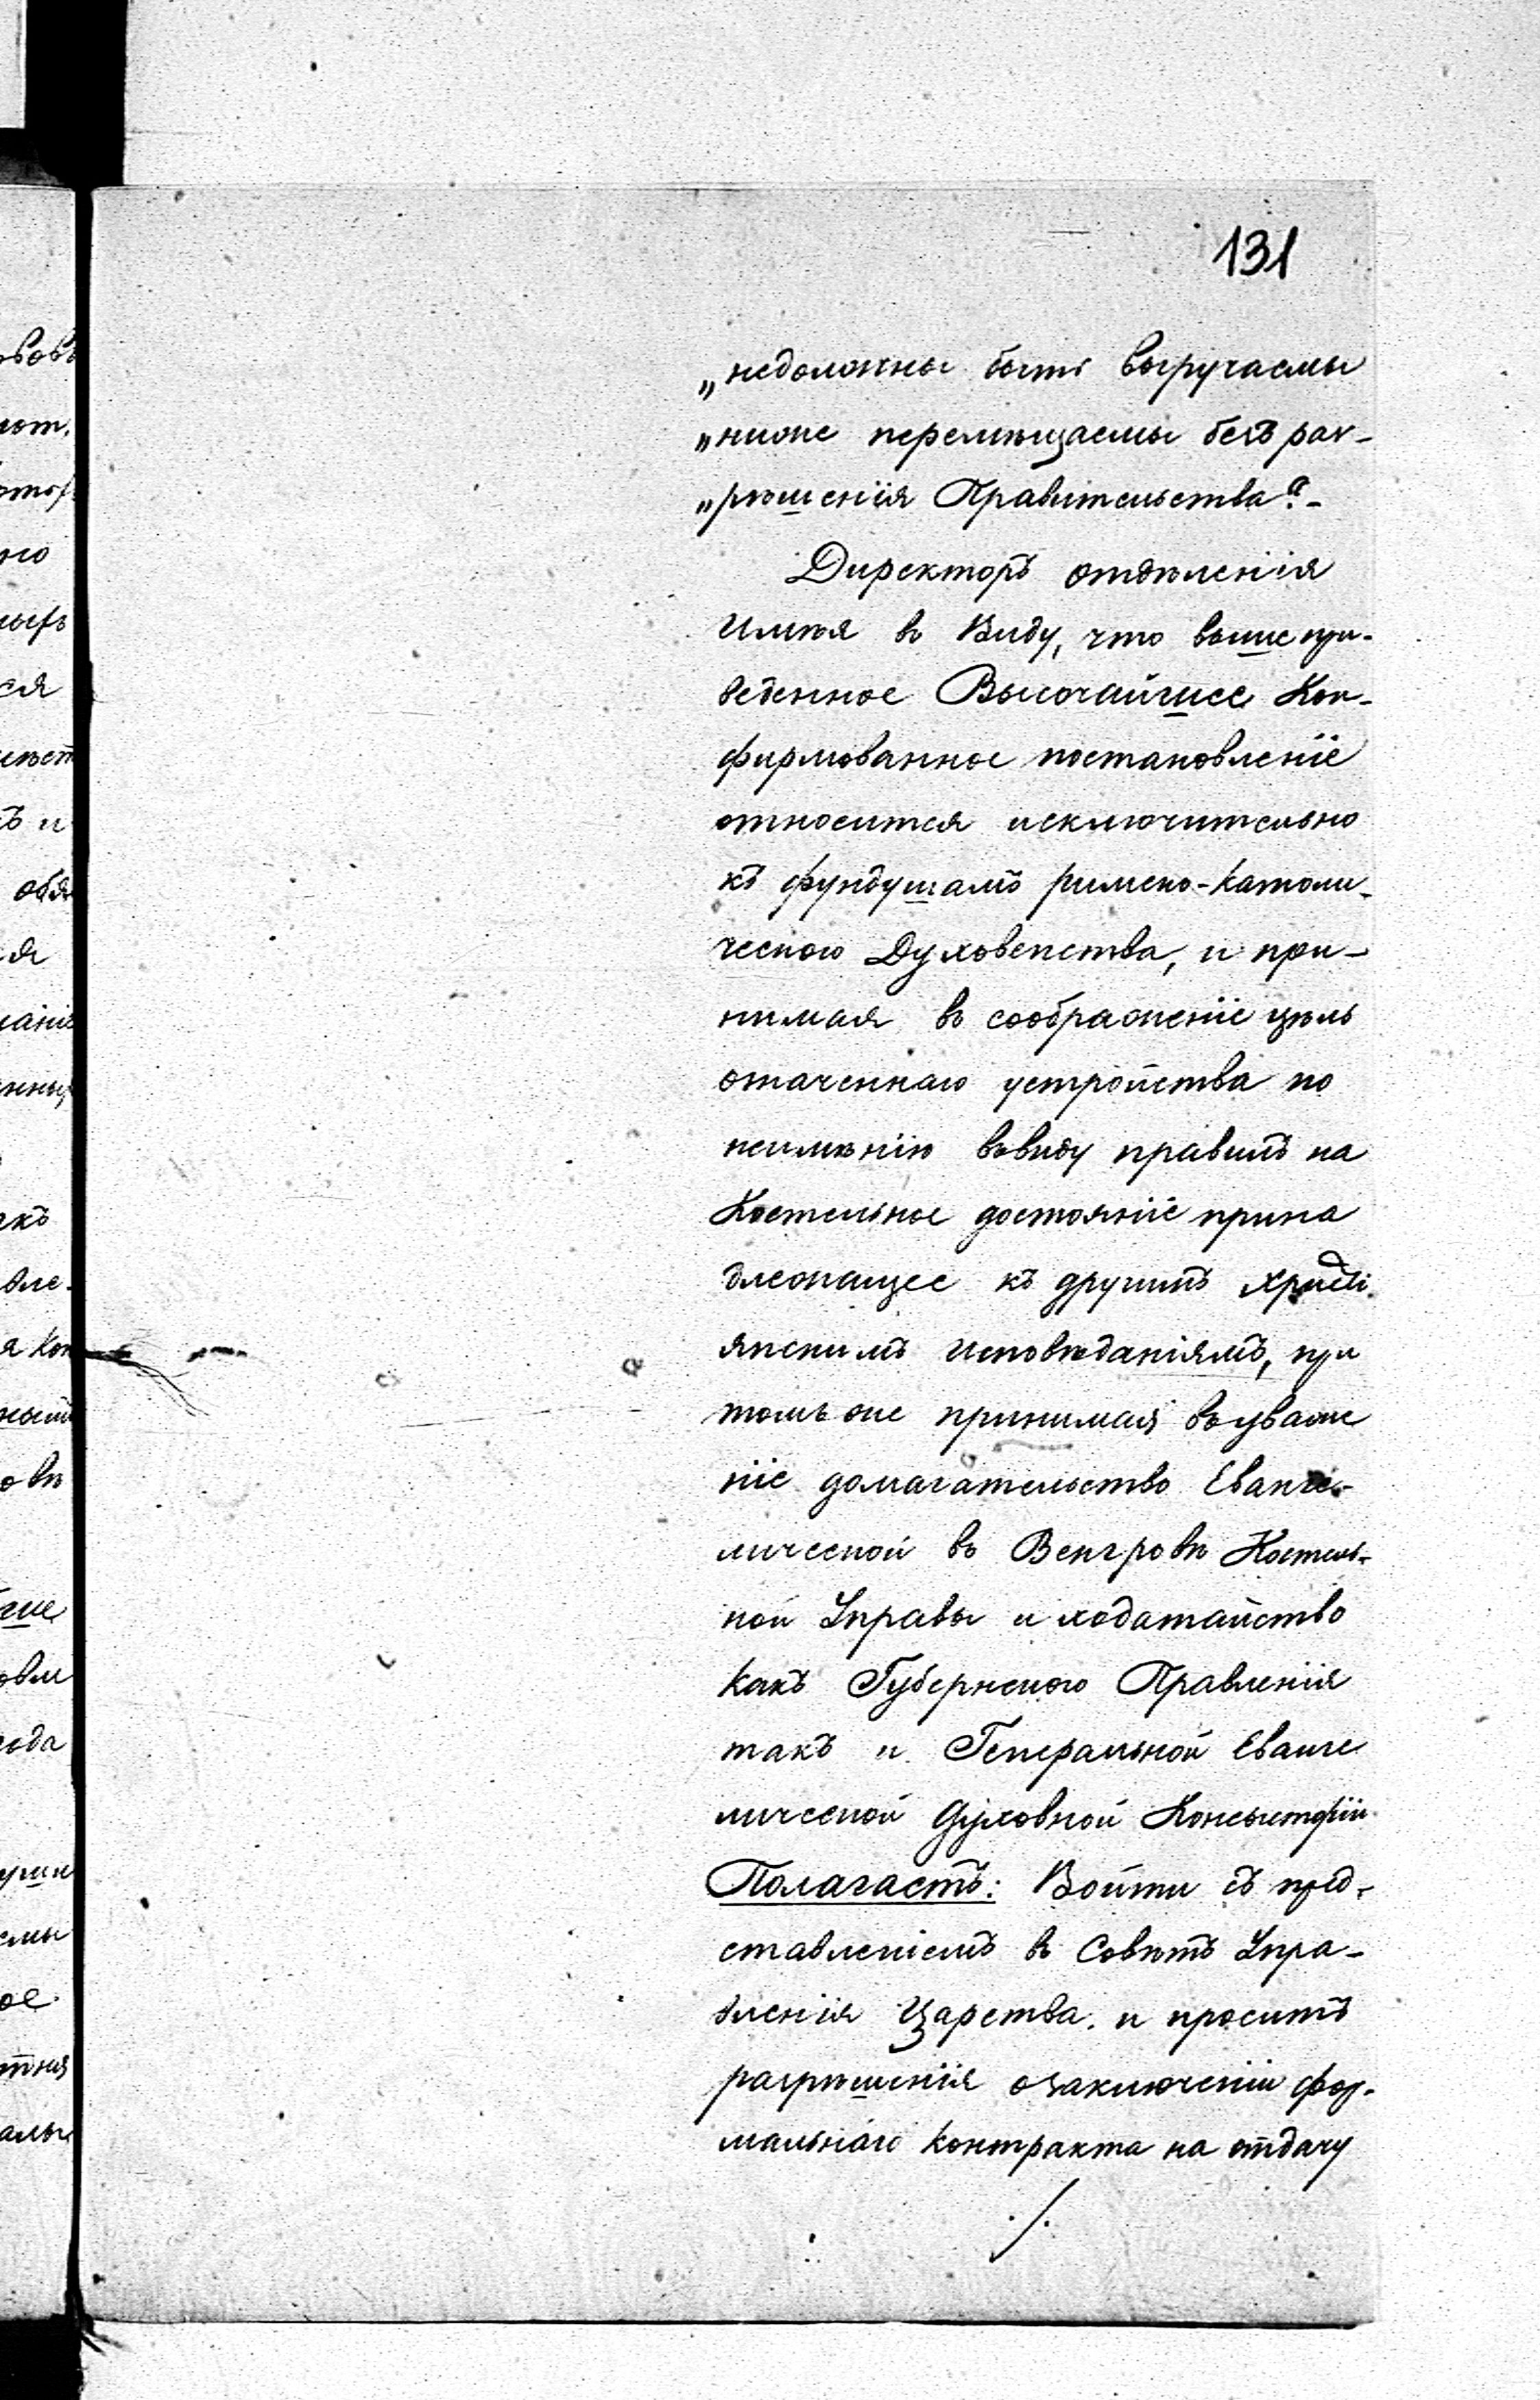 131
„недолжны быть выручаемы
„ниже перемѣщаемы безъ раз-
„рѣшенія Правительства“.-
Директоръ отдѣленія
имѣя в Виду, что вышепри-
веденное Высочайшее Кон-
фирмованное постановленіе
относится исключительно
къ фундушамъ римско-католи-
ческого Духовенства, и при-
нимая в соображеніе цѣль
означеннаго устройства по
неимѣнію ввиду правилъ на
Костельное достояніе прина
длежащее къ другимъ христі
янскимъ исповѣданіямъ, при
томъ же принимая въ уваже
ніе домагательство Еванге-
лической в Венгровѣ Костель-
ной Управы и ходатайство
какъ Губернского Правленія
такъ и Генеральной Еванге
лической Духовной Консысторіи
Полагаетъ: Войти съ пред-
ставленіемъ в Совѣтъ Упра-
вленія Царства. и проситъ
разрѣшенія о заключеніи фор-
мальнаго контракта на отдачу
./.